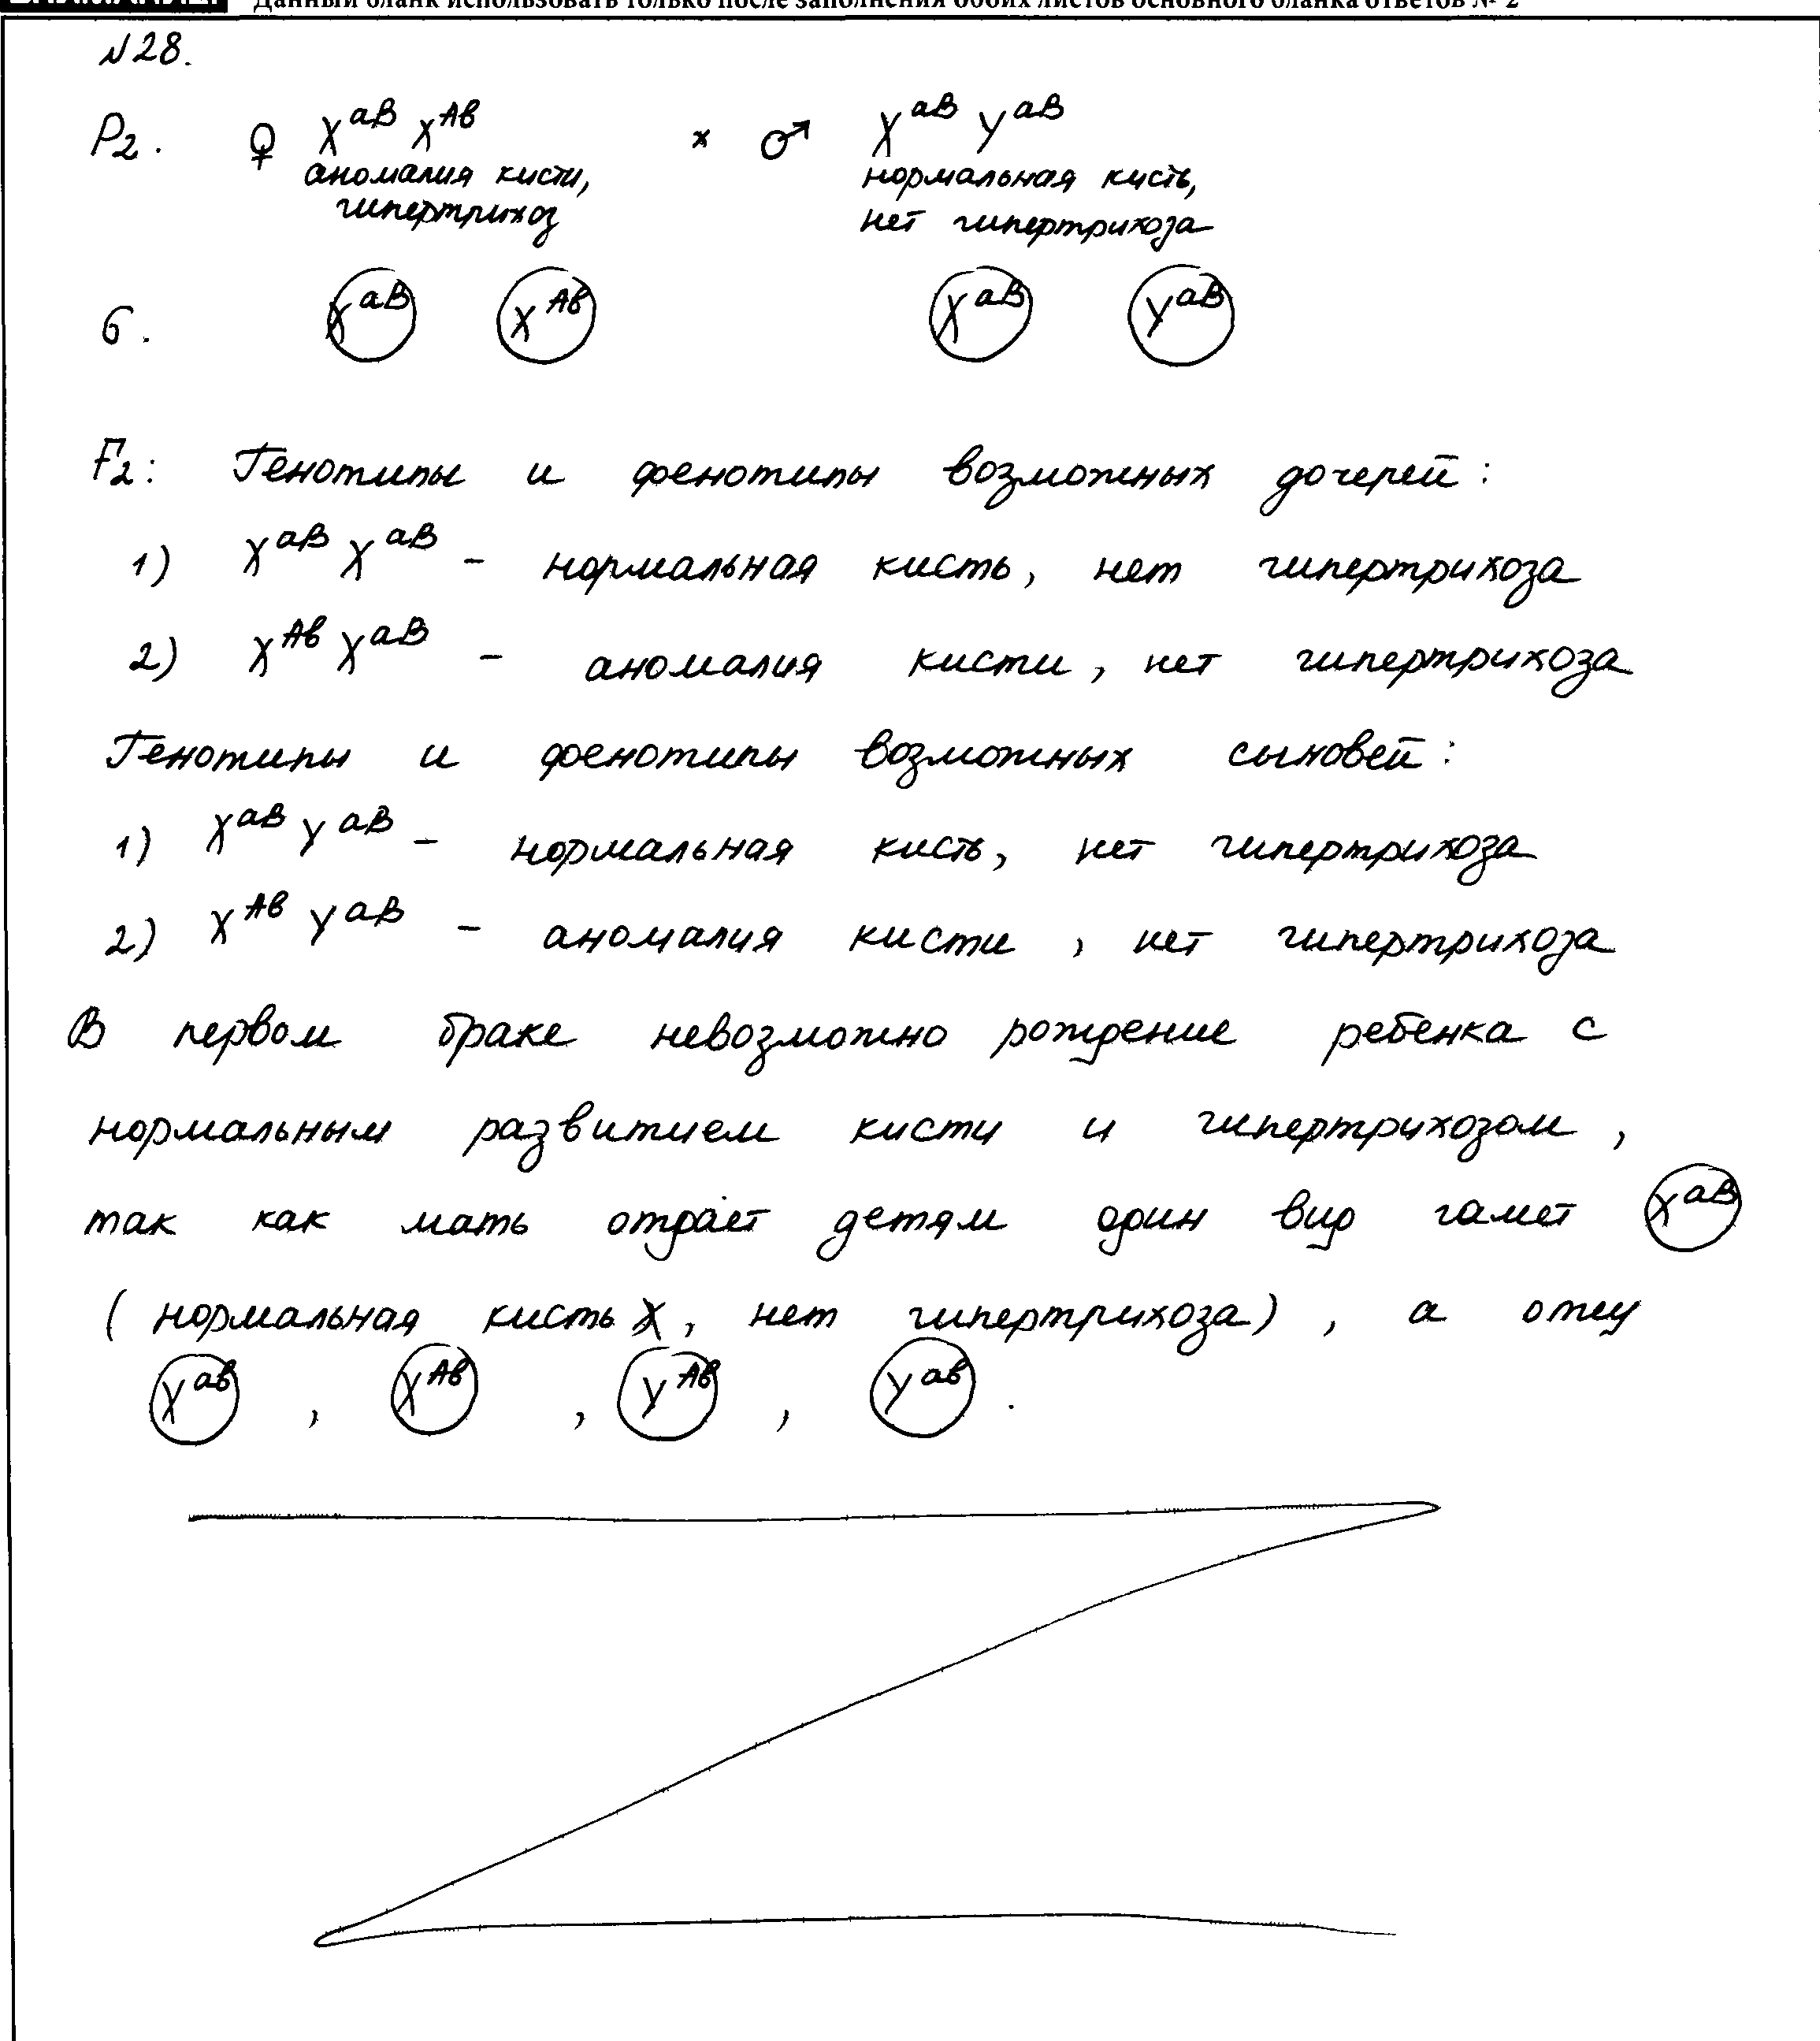 Данный бланк использовать только после заполнения обоих листов основного бланка ответов № 2
№28.
P₂. ♀ X^aB X^Ab × ♂ X^aB Y^aB
аномалия кисти, нормальная кисть,
гипертрихоз нет гипертрихоза
G. X^aB X^Ab X^aB Y^aB
F₂: Генотипы и фенотипы возможных дочерей:
1) X^aB X^aB - нормальная кисть, нет гипертрихоза
2) X^Ab X^aB - аномалия кисти, нет гипертрихоза
Генотипы и фенотипы возможных сыновей:
1) X^aB Y^aB - нормальная кисть, нет гипертрихоза
2) X^Ab Y^aB - аномалия кисти, нет гипертрихоза
В первом браке невозможно рождение ребенка с
нормальным развитием кисти и гипертрихозом,
так как мать отдаёт детям один вид гамет X^aB
(нормальная кисть, нет гипертрихоза), а отец
X^ab, X^Ab, Y^Ab, Y^ab.